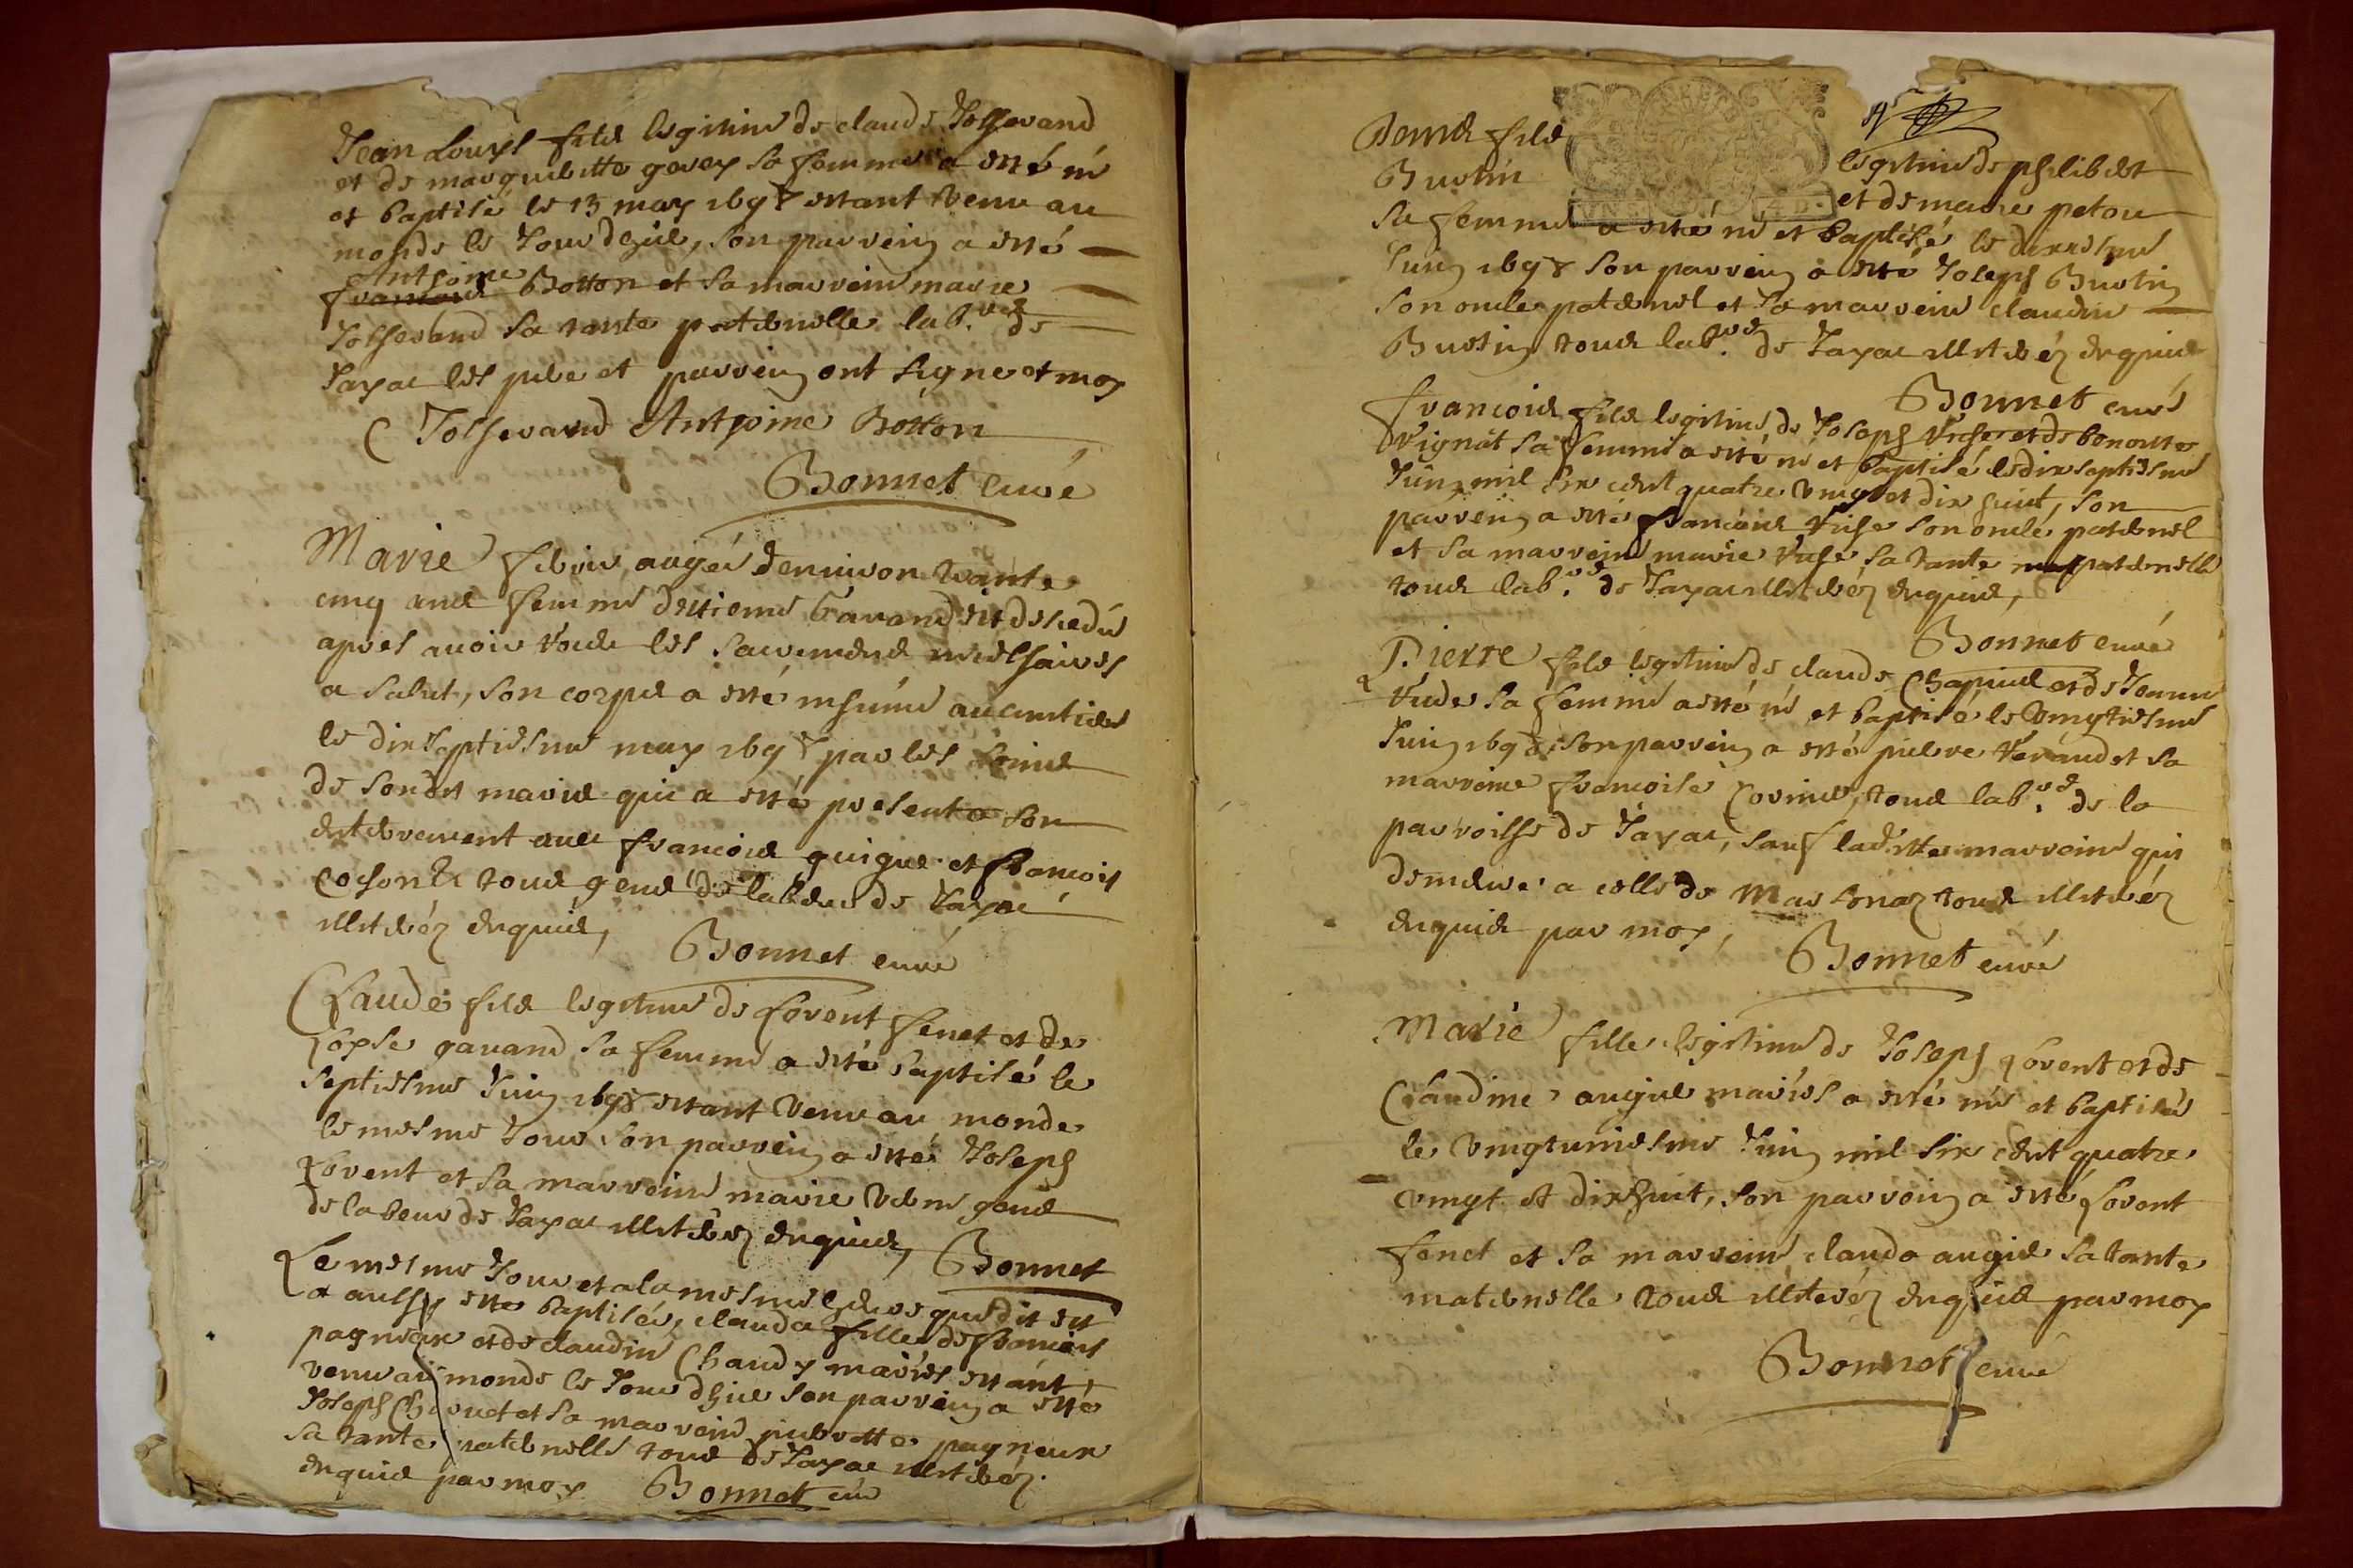 Jean Louys fils legitime de claude Tolherand
et de marguelitte gerey sa femme a esté né
et baptisé le 13 may 1698 estant venu au
monde le Jour d'hier, son parrein a esté
Anthoine
Botton et sa marreine marie
Tolherand sa tante paternelle labrs de
Jayac les pere et parrein ont signe et moy
C Tolherand Anthoine Botton
Bonnet curé
Marie aagée d'environ trante
cinq ans femme d'estienne Gavand est decedée
apres avoir tous les sacremens necessaires
a salut, son corps a esté inhumé au cimetiere
le dix septiesme may 1698 par les soins
de sondit marie qui a esté present a son
enterrement avec francois guigue et francois
tous gens de labeur de Jayac
illiterés enquis,
Bonnet curé
Claude fils legitime de Lorent fenet et de
gavand sa femme a esté baptisé le
septiesme Juin 1698 estant venu au monde
le mesme Jour son parrein a esté Joseph
Lorent et sa marreine marie gens
de labeur de Jayac illiterés enquis, Bonnet
Le mesme Jour et a la mesme heure que dit est
a aussy esté baptisée, clauda fille de francois
pagneux et de claudine Chaudy mariés estant
venue au monde le Jour d'hier son parrein a esté
Joseph et sa marreine pierrette pagneux
sa tante paternelle tous de Jayac illiterés
enquis par moy Bonnet curé
Denis fils legitime de philibert
Burtin et de marie petou
sa femme a esté né et baptisé le dixiesme
Juin 1698 son parrein a esté Joseph Burtin
son oncle paternel et sa marreine claudine
Burtin tous labrs de Jayac illiterés enquis
Bonnet curé
francois fils legitime de Joseph et de benoitte
Vignat sa femme a esté né et baptisé le dix septiesme
Juin mil six cent quatre vingt et dix huit, son
parrein a esté francois son oncle paternel
et sa marreine marie sa tante paternelle
tous labrs de Jayac illiterés enquis,
Bonnet curé
Pierre fils legitime de claude Chapuis et de Jeanne
sa femme a esté né et baptisé le vingtiesme
Juin 1698 son parrein a esté pierre Veraud et sa
marreine francoise tous labrs de la
parroisse de Jayac, sauf laditte marreine qui
demeure a celle de Marsonaz tous illiterés
enquis par moy, Bonnet curé
Marie fille legitime de Joseph Lorent et de
Claudine augie mariés a esté née et baptisée
le vingtuniesme Juin mil six cent quatre
vingt et dixhuit, son parrein a esté Lorent
fenet et sa marreine clauda augie sa tante
maternelle tous illiterés enquis par moy
Bonnet curé